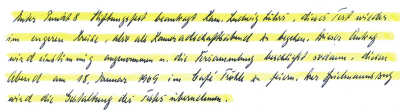 Unter Punkt 8 Stiftungsfest beantragt Kam. Ludwig Führs, dieses Fest wieder
im engeren Kreise, also als Kameradschaftsabend zu begehen. Dieser Antrag
wird einstimmig angenommen u. die Versammlung beschließt sodann, diesen
Abend am 18. Januar 1969 im Café Fröhle zu feiern. Der Spielmannszug
wird die Gestaltung des Festes übernehmen.